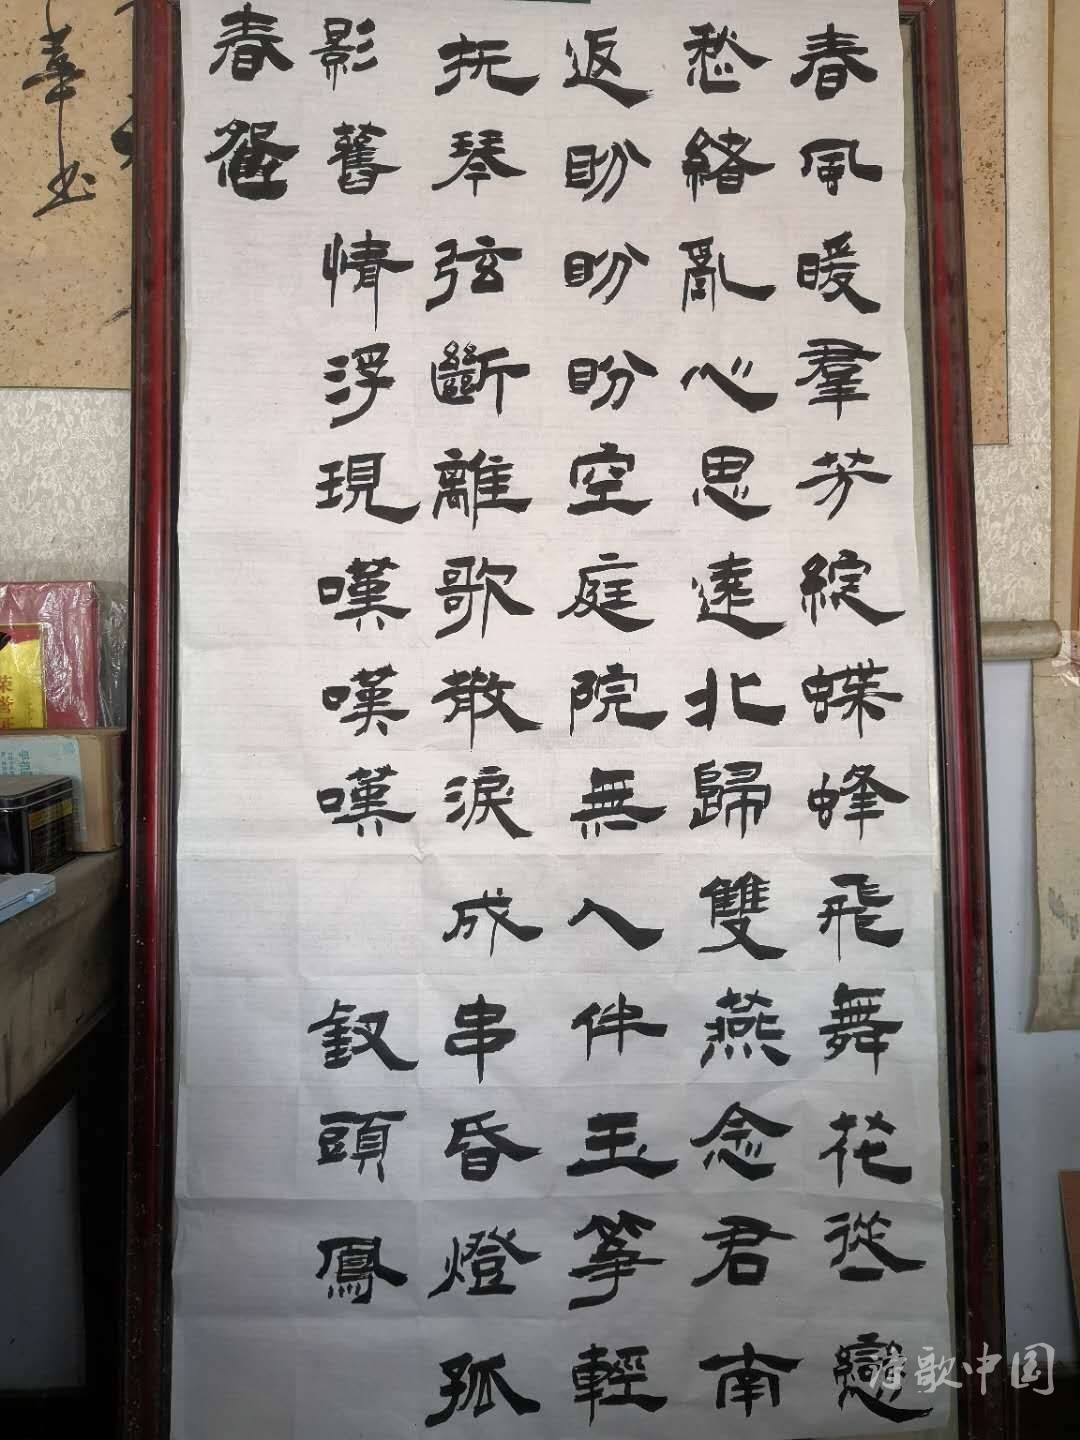 春風暖羣芳綻蝶蜂飛舞花從戀
愁緒亂心思遠北歸雙燕念君南
返盼盼盼空庭院無人伴玉筝輕
抚琴弦斷離歌散淚成串昏燈孤
影舊情浮現嘆嘆嘆
釵頭鳳
春
華书
诗歌中国